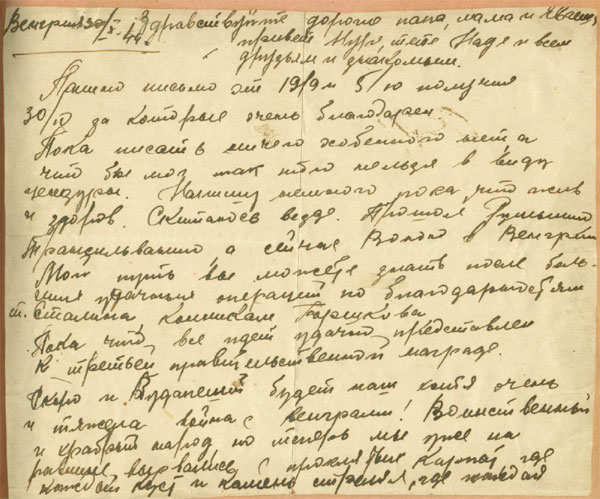 Венгрия 30/X-44г. Здравствуйте дорогие папа, мама и
привет Нуре, тете Наде и всем
друзьям и знакомым.
Ваши письма от 19/9 и 5/ получил
30/ за которые очень благодарен
Пока писать ничего особенного нет а
что бы мог так него нельзя в виду
цензуры. Напишу немного пока, что жив
и здоров. Скитаюсь везде. Прошел Румынию
Трансильванию а сейчас Воюю в Венгрии
Мой путь вы можете знать после боль-
ших удачных операций по благодарностям
т. Сталина конникам Горшкова
Пока что все идет удачно представлен
к третьей правительственной награде.
Скоро и Будапешт будет наш хотя очень
и тяжела война с венграми! Воинственный
и храбрый народ но теперь мы уже на
равнине вырвались с проклятые Карпат, где
каждый куст и камень стрелял, где каждая